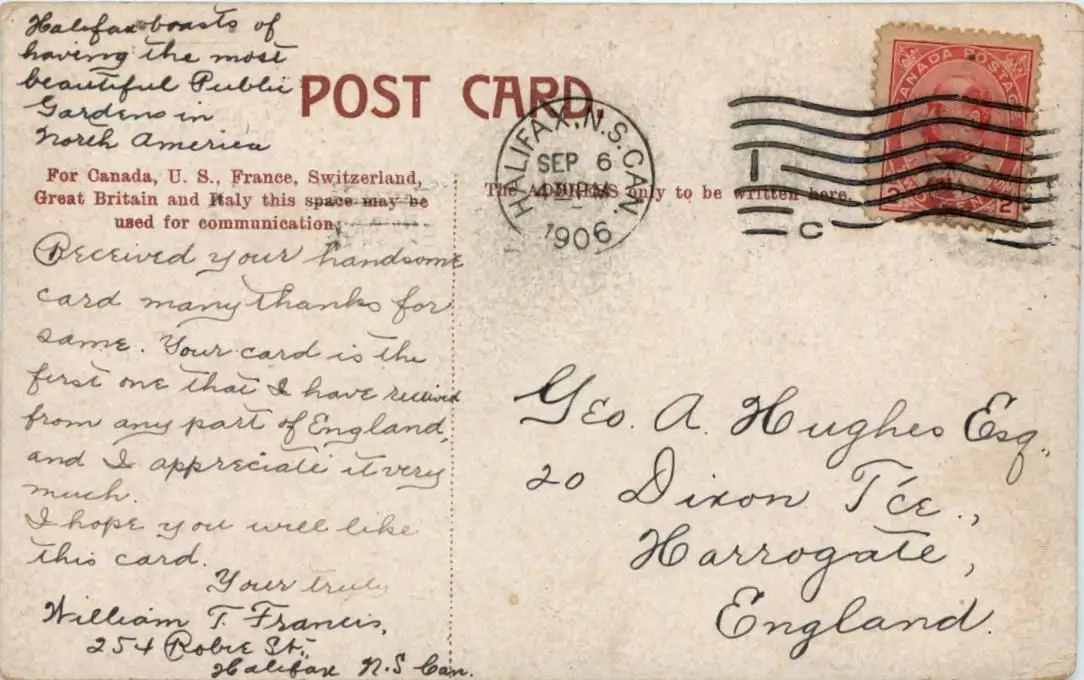 Halifax boasts of
having the most
beautiful Public
Gardens in
North America
POST CARD
For Canada, U. S., France, Switzerland,
Great Britain and Italy this space may be
used for communication.
The ADDRESS only to be written here.
HALIFAX, N.S. CAN.
SEP 6
PM
1906
C
CANADA POSTAGE
2 2
CENTS
Received your handsome
card many thanks for
same. Your card is the
first one that I have received
from any part of England,
and I appreciate it very
much.
I hope you will like
this card.
Your truly
William T. Francis,
254 Robie St.,
Halifax N.S Can.
Geo. A. Hughes Esq.
20 Dixon T'ce.,
Harrogate,
England.